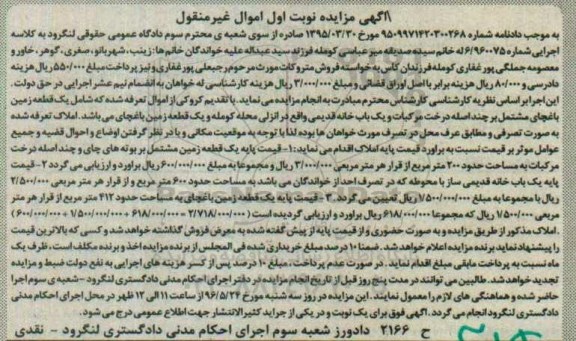 آگهی مزایده نوبت اول اموال غیر منقول
به موجب دادنامه شماره ۹۵۰۹۹۷۱۴۲۰۳۰۰۲۶۸ مورخ ۱۳۹۵/۰۳/۳۰ صادره از سوی شعبه ی محترم سوم دادگاه عمومی حقوقی لنگرود به کلاسه
اجرایی شماره ۶/۹۶۰۰۷۵ له خانم سیده صدیقه میر عباسی کومله فرزند سید عبداله علیه خواندگان خانم ها: زینب، شهربانو، صغری، گوهر، خاور و
معصومه جملگی پور غفاری کومله فرزندان کاس به خواسته فروش متروکات مورث مرحوم رجبعلی پور غفاری و نیز پرداخت مبلغ ۵۵۰/۰۰۰ ریال هزینه
دادرسی و ۸۰/۰۰۰ ریال هزینه برابر با اصل اوراق قضائی و مبلغ ۳/۰۰۰/۰۰۰ ریال هزینه کارشناسی له خواهان به انضمام نیم عشر اجرایی در حق دولت.
این اجرا بر اساس نظریه کارشناسی کارشناس محترم مبادرت به انجام مزایده می نماید. با تقدیم کروکی از اموال تعرفه شده که شامل یک قطعه زمین
باغچای مشتمل بر چند اصله درخت مرکبات و یک باب خانه قدیمی واقع در انزلی محله کومله و یک قطعه زمین باغچای می باشد. املاک تعرفه شده
به صورت تصرفی و مطابق عرف محل در تصرف مورث خواهان ها بوده لذا با توجه به موقعیت مکانی و با در نظر گرفتن اوضاع و احوال قضیه و جمیع
عوامل موثر بر قیمت نسبت به برآورد قیمت پایه املاک اقدام می نماید: ۱- قیمت پایه یک قطعه زمین مشتمل بر بوته های چای و چند اصله درخت
مرکبات به مساحت حدود ۲۰۰ متر مربع از قرار هر متر مربعی ۳/۰۰۰/۰۰۰ ریال و مجموعا به مبلغ ۶۰۰/۰۰۰/۰۰۰ ریال برآورد و ارزیابی می گردد ۲- قیمت
پایه یک باب خانه قدیمی ساز با محوطه که در تصرف احد از خواندگان می باشد به مساحت حدود ۶۰۰ متر مربع و از قرار هر متر مربعی ۲/۵۰۰/۰۰۰
ریال با مجموعا به مبلغ ۱/۵۰۰/۰۰۰/۰۰۰ ریال تعیین می گردد. ۳- قیمت پایه یک قطعه زمین باغچای به مساحت حدود ۴۱۲ متر مربع از قرار هر متر
مربعی ۱/۵۰۰/۰۰۰ ریال که مجموعا ۶۱۸/۰۰۰/۰۰۰ ریال برآورد و ارزیابی گردیده است (۲/۷۱۸/۰۰۰/۰۰۰ = ۶۱۸/۰۰۰/۰۰۰ + ۱/۵۰۰/۰۰۰/۰۰۰ + ۶۰۰/۰۰۰/۰۰۰)
. املاک مذکور از طریق مزایده و به صورت حضوری و از قیمت پایه از پیش گفته شده به معرض فروش گذاشته خواهد شد و کسی که بالاترین قیمت
را پیشنهاد نماید برنده مزایده اعلام خواهد شد. ضمنا ۱۰ درصد مبلغ خریداری شده فی المجلس از برنده مزایده اخذ و برنده مکلف است، ظرف یک
ماه نسبت به پرداخت مابقی مبلغ اقدام نماید. در صورت عدم پرداخت، مبلغ ۱۰ درصد پس از کسر هزینه های اجرایی به نفع دولت ضبط و مزایده
تجدید خواهد شد. طالبین می توانند در مدت پنج روز قبل از تاریخ انجام مزایده در دفتر اجرای احکام مدنی دادگستری لنگرود - شعبه ی سوم اجرا
حاضر شده و هماهنگی های لازم را معمول نمایند. این مزایده در روز سه شنبه مورخ ۹۶/۵/۲۴ از ساعت ۱۱ الی ۱۲ ظهر در محل اجرای احکام مدنی
دادگستری لنگرود انجام می گردد. آگهی فوق برای یک نوبت و در یکی از جراید کثیرالانتشار جهت اطلاع عمومی درج می شود.
ح ۲۱۶۶ دادورز شعبه سوم اجرای احکام مدنی دادگستری لنگرود - نقدی